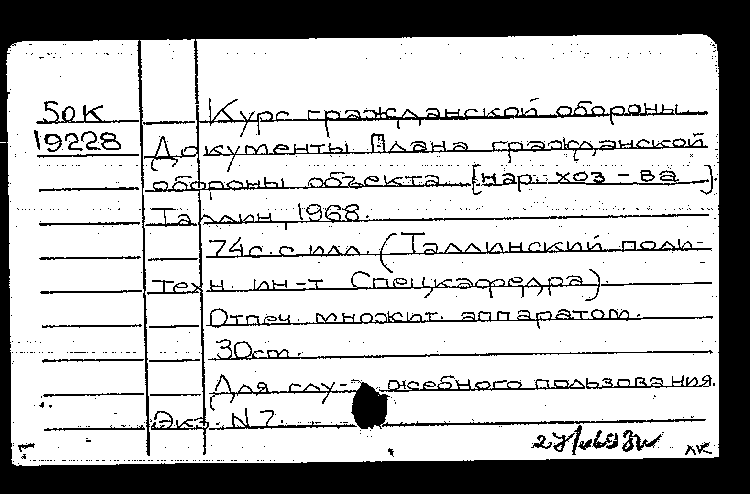 50К Курс гражданской обороны
19228 Документы Плана гражданской
обороны объекта [нар. хоз-ва]
Таллин, 1968.
74с. с илл. (Таллинский поли-
техн. ин-т Спецкафедра).
Отпеч. множит. аппаратом.
30cm.
Для слу-жебного пользования.
Экз. N 7.
лк